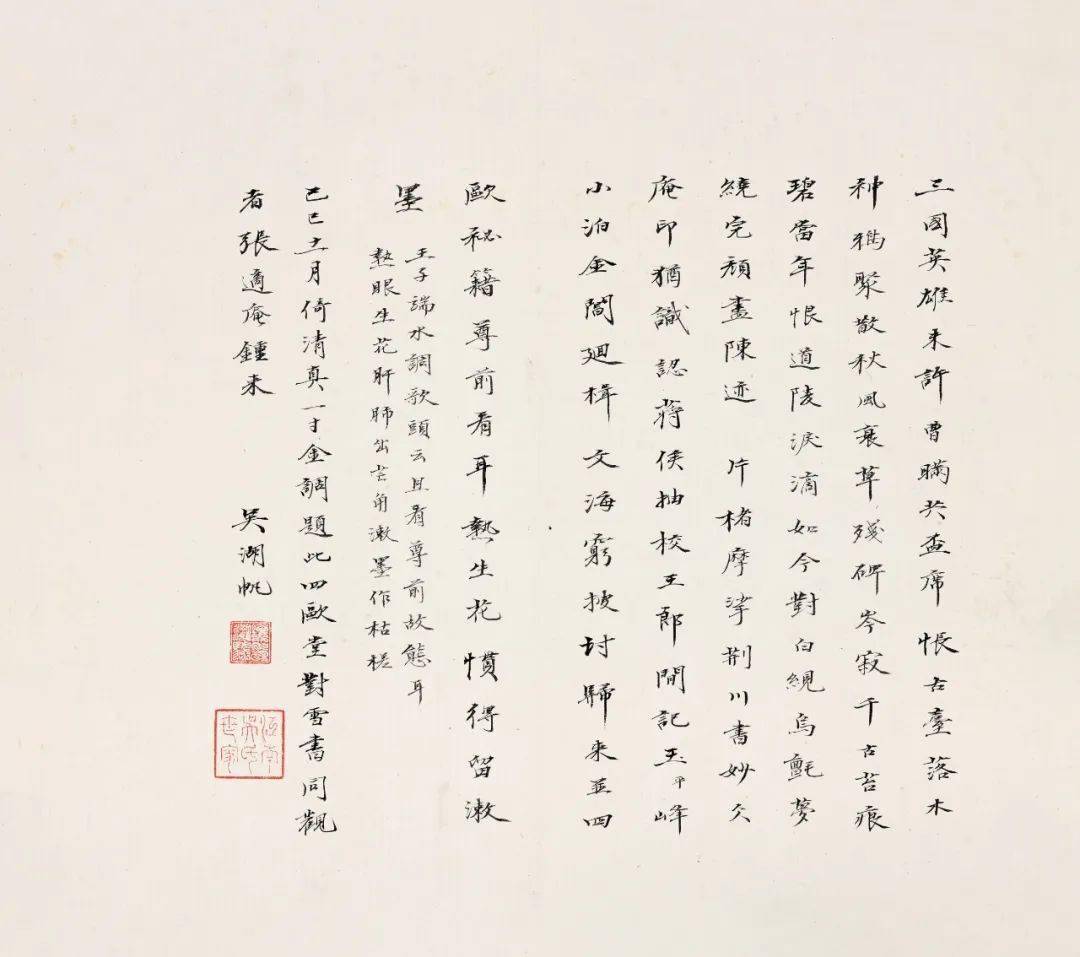 三國英雄未許曹瞞共盃席悵古臺落木
神鴉聚散秋風衰草殘碑岑寂千古苔痕
碧當年恨道陵淚滴如今對白繭烏氈夢
繞完顏畫陳迹 片楮摩挲荆川書妙欠
庵印猶識認蔣侯抽校王郎閒記玉峰
小泊金閶廻楫文海窮披討歸來並四
歐秘籍尊前看耳熱生花慣得留漱
墨 王子端水調歌頭云且看尊前故態耳
熱眼生花肝肺出芒角漱墨作枯槎
己巳十二月倚清真一寸金調題此四歐堂對雪書同觀
者張適庵鍾來
吳湖帆
江南吳氏世家